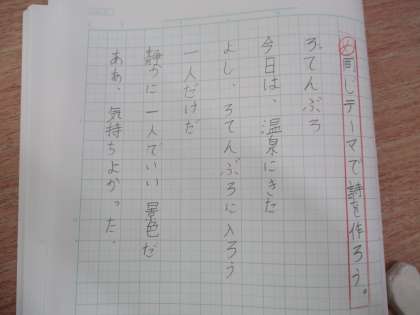 め 同じテーマで詩を作ろう。
ろてんぶろ
今日は、温泉にきた
よし、ろてんぶろに入ろう
一人だけだ
静かに一人でいい景色だ
ああ、気持ちよかった。